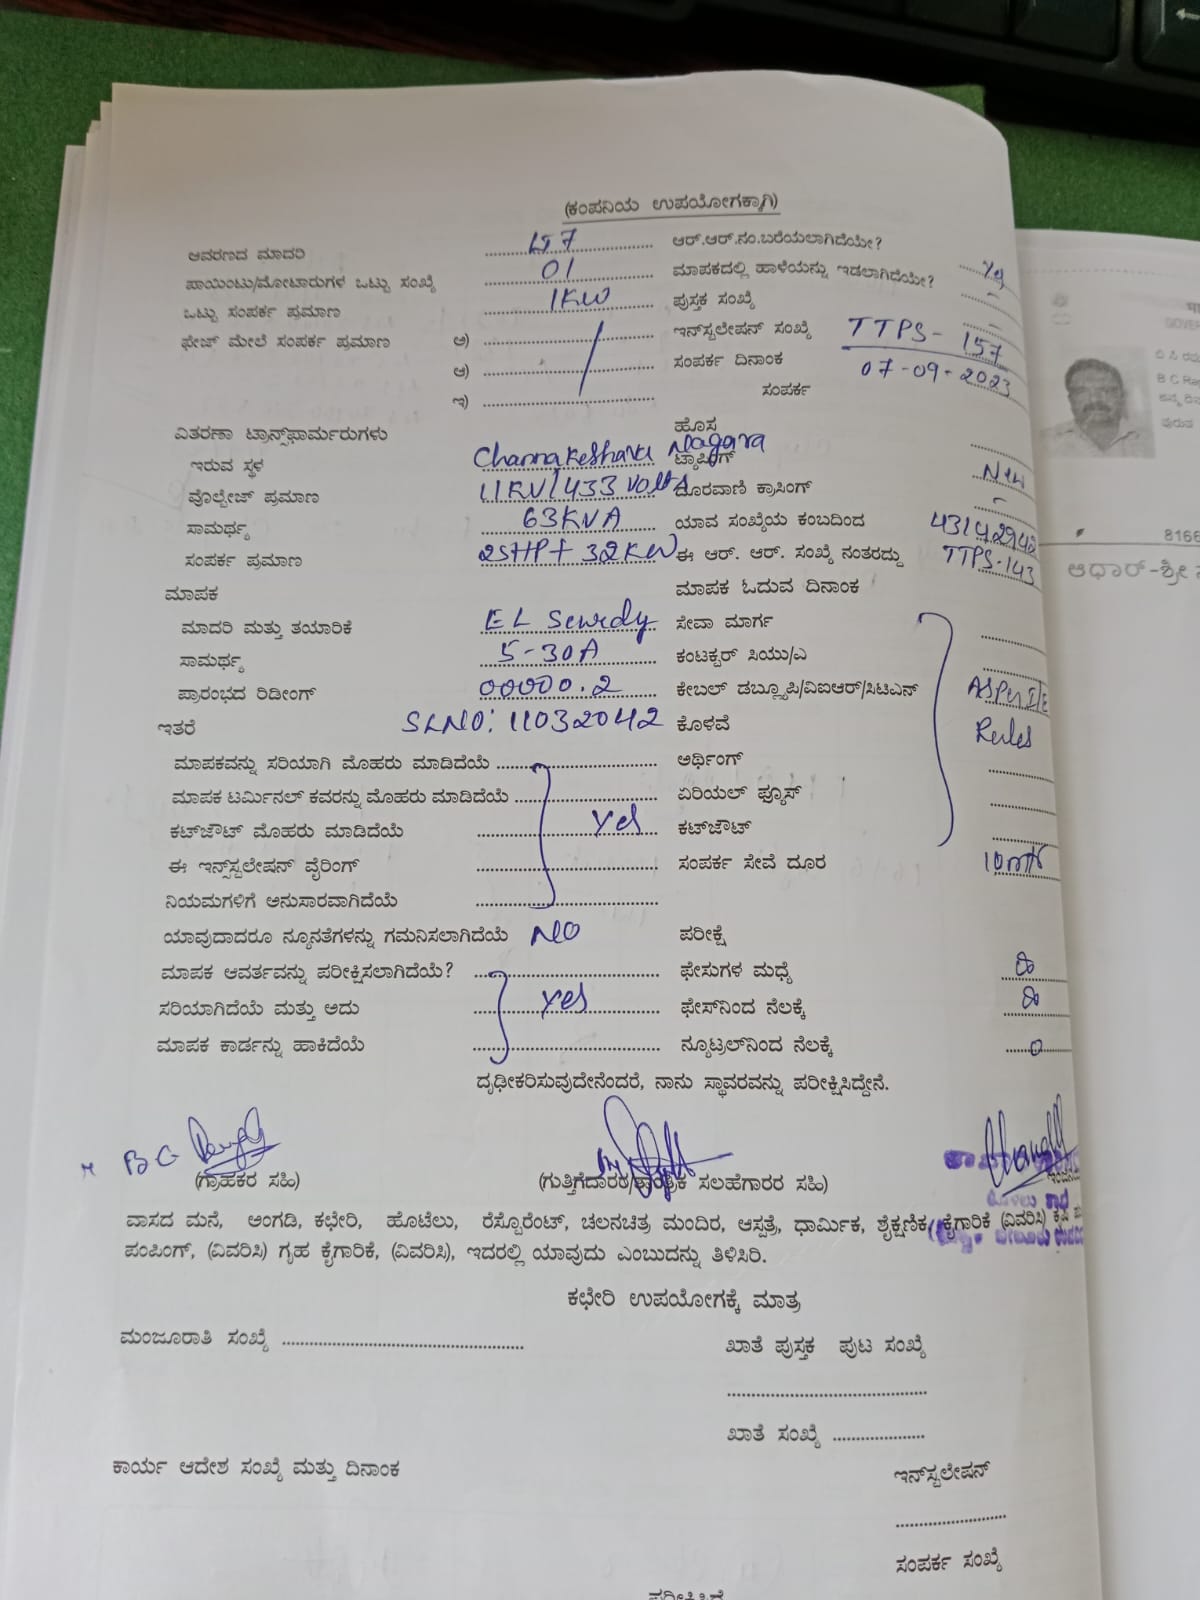 (ಕಂಪನಿಯ ಉಪಯೋಗಕ್ಕಾಗಿ)
ಆವರಣದ ಮಾದರಿ LT 7 ಆರ್.ಆರ್.ನಂ.ಬರೆಯಲಾಗಿದೆಯೇ? Yes
ಪಾಯಿಂಟು/ಮೋಟಾರುಗಳ ಒಟ್ಟು ಸಂಖ್ಯೆ 01 ಮಾಪಕದಲ್ಲಿ ಹಾಳೆಯನ್ನು ಇಡಲಾಗಿದೆಯೇ? -
ಒಟ್ಟು ಸಂಪರ್ಕ ಪ್ರಮಾಣ 1KW ಪುಸ್ತಕ ಸಂಖ್ಯೆ -
ಫೇಜ್ ಮೇಲೆ ಸಂಪರ್ಕ ಪ್ರಮಾಣ ಅ) ಇನ್‌ಸ್ಟಲೇಷನ್ ಸಂಖ್ಯೆ TTPS - 157
ಆ) ಸಂಪರ್ಕ ದಿನಾಂಕ 07-09-2023
ಇ) ಸಂಪರ್ಕ
ವಿತರಣಾ ಟ್ರಾನ್ಸ್‌ಫಾರ್ಮರುಗಳು ಹೊಸ
ಇರುವ ಸ್ಥಳ Channakeshava Nagara ಟ್ಯಾಪಿಂಗ್ New
ವೊಲ್ಟೇಜ್ ಪ್ರಮಾಣ 11KV/433 Volts ದೂರವಾಣಿ ಕ್ರಾಸಿಂಗ್ -
ಸಾಮರ್ಥ್ಯ 63KVA ಯಾವ ಸಂಖ್ಯೆಯ ಕಂಬದಿಂದ 43142942
ಸಂಪರ್ಕ ಪ್ರಮಾಣ 25HP+ 32KW ಈ ಆರ್. ಆರ್. ಸಂಖ್ಯೆ ನಂತರದ್ದು TTPS-143
ಮಾಪಕ ಮಾಪಕ ಓದುವ ದಿನಾಂಕ
ಮಾದರಿ ಮತ್ತು ತಯಾರಿಕೆ EL ಸೇವಾ ಮಾರ್ಗ
ಸಾಮರ್ಥ್ಯ 5-30A ಕಂಟಕ್ಟರ್ ಸಿಯು/ಎ
ಪ್ರಾರಂಭದ ರಿಡೀಂಗ್ 00000.2 ಕೇಬಲ್ ಡಬ್ಲ್ಯೂಪಿ/ವಿಐಆರ್/ಸಿಟಿಎನ್ ASPer I/E
ಇತರೆ SLNO: 11032042 ಕೊಳವೆ Rules
ಮಾಪಕವನ್ನು ಸರಿಯಾಗಿ ಮೊಹರು ಮಾಡಿದೆಯೆ ಅರ್ಥಿಂಗ್
ಮಾಪಕ ಟರ್ಮಿನಲ್ ಕವರನ್ನು ಮೊಹರು ಮಾಡಿದೆಯೆ ಏರಿಯಲ್ ಫ್ಯೂಸ್
ಕಟ್‌ಔಟ್ ಮೊಹರು ಮಾಡಿದೆಯೆ Yes ಕಟ್‌ಔಟ್
ಈ ಇನ್‌ಸ್ಟಲೇಷನ್ ವೈರಿಂಗ್ ಸಂಪರ್ಕ ಸೇವೆ ದೂರ
ನಿಯಮಗಳಿಗೆ ಅನುಸಾರವಾಗಿದೆಯೆ
ಯಾವುದಾದರೂ ನ್ಯೂನತೆಗಳನ್ನು ಗಮನಿಸಲಾಗಿದೆಯೆ NO ಪರೀಕ್ಷೆ
ಮಾಪಕ ಆವರ್ತವನ್ನು ಪರೀಕ್ಷಿಸಲಾಗಿದೆಯೆ? ಫೇಸುಗಳ ಮಧ್ಯೆ
ಸರಿಯಾಗಿದೆಯೆ ಮತ್ತು ಅದು Yes ಫೇಸ್‌ನಿಂದ ನೆಲಕ್ಕೆ
ಮಾಪಕ ಕಾರ್ಡನ್ನು ಹಾಕಿದೆಯೆ ನ್ಯೂಟ್ರಲ್‌ನಿಂದ ನೆಲಕ್ಕೆ 0
ದೃಢೀಕರಿಸುವುದೇನೆಂದರೆ, ನಾನು ಸ್ಥಾವರವನ್ನು ಪರೀಕ್ಷಿಸಿದ್ದೇನೆ.
(ಗ್ರಾಹಕರ ಸಹಿ) (ಗುತ್ತಿಗೆದಾರರ/ತಾಂತ್ರಿಕ ಸಲಹೆಗಾರರ ಸಹಿ)
ವಾಸದ ಮನೆ, ಅಂಗಡಿ, ಕಛೇರಿ, ಹೊಟೆಲು, ರೆಸ್ಟೊರೆಂಟ್, ಚಲನಚಿತ್ರ ಮಂದಿರ, ಆಸ್ಪತ್ರೆ, ಧಾರ್ಮಿಕ, ಶೈಕ್ಷಣಿಕ ಕೈಗಾರಿಕೆ (ವಿವರಿಸಿ)
ಪಂಪಿಂಗ್, (ವಿವರಿಸಿ) ಗೃಹ ಕೈಗಾರಿಕೆ, (ವಿವರಿಸಿ), ಇದರಲ್ಲಿ ಯಾವುದು ಎಂಬುದನ್ನು ತಿಳಿಸಿರಿ.
ಕಛೇರಿ ಉಪಯೋಗಕ್ಕೆ ಮಾತ್ರ
ಮಂಜೂರಾತಿ ಸಂಖ್ಯೆ ಖಾತೆ ಪುಸ್ತಕ ಪುಟ ಸಂಖ್ಯೆ
ಖಾತೆ ಸಂಖ್ಯೆ
ಕಾರ್ಯ ಆದೇಶ ಸಂಖ್ಯೆ ಮತ್ತು ದಿನಾಂಕ ಇನ್‌ಸ್ಟಲೇಷನ್
ಸಂಪರ್ಕ ಸಂಖ್ಯೆ
8166
ಆಧಾರ್-ಶ್ರೀ